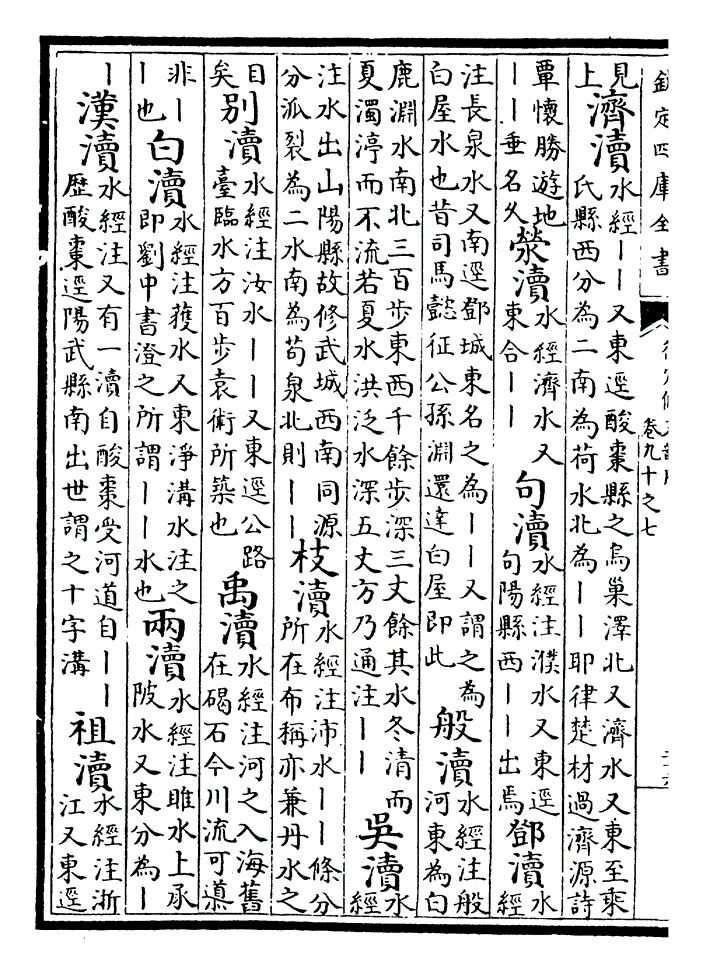 欽定四庫全書
卷九十之七
見上濟瀆水經丨丨又東逕酸棗縣之烏巢澤北又濟水又東至乘氏縣西分為二南為荷水北為丨丨耶律楚材過濟源詩
覃懷勝遊地丨丨垂名久滎瀆水經濟水又東合丨丨句瀆水經注濮水又東逕句陽縣西丨丨出焉鄧瀆水經
注長泉水又南逕鄧城東名之為丨丨又謂之為白屋水也昔司馬懿征公孫淵還達白屋即此般瀆水經注般河東為白
鹿淵水南北三百步東西千餘步深三丈餘其水冬清而夏濁渟而不流若夏水洪泛水深五丈方乃通注丨丨吳瀆水經
注水出山陽縣故修武城西南同源分泒裂為二水南為苟泉北則丨丨枝瀆水經注沛水丨丨條分所在布稱亦兼丹水之
目矣別瀆水經注汝水丨丨又東逕公路臺臨水方百步袁術所築也禹瀆水經注河之入海舊在碣石今川流可導
非丨丨也白瀆水經注獲水又東淨溝水注之即劉中書澄之所謂丨丨水也兩瀆水經注睢水上承陂水又東分為丨
丨漢瀆水經注又有一瀆自酸棗受河道自丨丨歷酸棗逕陽武縣南出世謂之十字溝祖瀆水經注浙江又東逕